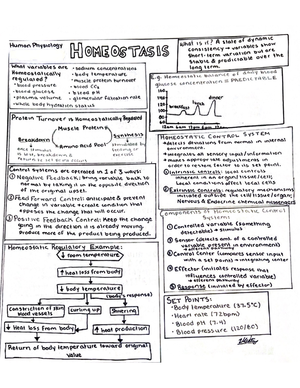 Human Physiology
HOMEOSTASIS
What variables are
Homeostatically
regulated?
• blood pressure
• blood glucose
• plasma volume
• whole body hydration status
• sodium concentrations
• body temperature
• muscle protein turnover
• blood CO2
• blood pH
• glomerular filtration rate
What is it? A state of dynamic
consistency - variables show
short-term variation but are
stable & predictable over the
long term.
E.g. Homeostatic balance of body blood
glucose concentration is PREDICTABLE
breakfast
lunch
dinner
Protein Turnover is Homeostatically Regulated
Muscle Protein
Breakdown
Synthesis
Amino Acid Pool
Control Systems are operated in 1 of 3 ways:
① Negative Feedback: bring variable back to
normal by taking it in the opposite direction
of the original upset
② Feed Forward Control: anticipate & prevent
change in variable, create condition that
opposes the change that will occur.
③ Positive Feedback Control: keep the change
going in the direction it is already moving.
Produce more of the product being produced.
HOMEOSTATIC CONTROL SYSTEM
• detects deviations from normal in internal
environment.
• integrates all sensory input/information
• makes appropriate adjustments in
order to restore factor to its set point.
① Intrinsic Controls: local controls
inherent in an organ/tissue/cell;
Local conditions affect local cells
② Extrinsic Controls: regulatory mechanisms
initiated outside of tissue/cell/organ
Nervous & Endocrine chemical messengers
Homeostatic Regulatory Example:
↓ room temperature
↑ heat loss from body
↓ body temperature
(body's response)
Constriction of skin
blood vessels
curling up
Shivering
↓ heat loss from body
↑ heat production
Return of body temperature toward original
value
Components of Homeostatic Control
Systems
① Controlled variable (something
detectable) → stimulus
② Sensor (detects amt. of a controlled
variable present in environment)
→ afferent pathway
③ Control center (compares sensor input
with a set point) → integrating center
④ Effector (initiates response that
influences controlled variable)
→ efferent pathway
⑤ Response (initiated by effector)
SET POINTS:
• Body temperature (37.5°C)
• Heart rate (72bpm)
• Blood pH (7.4)
• Blood pressure (120/80)